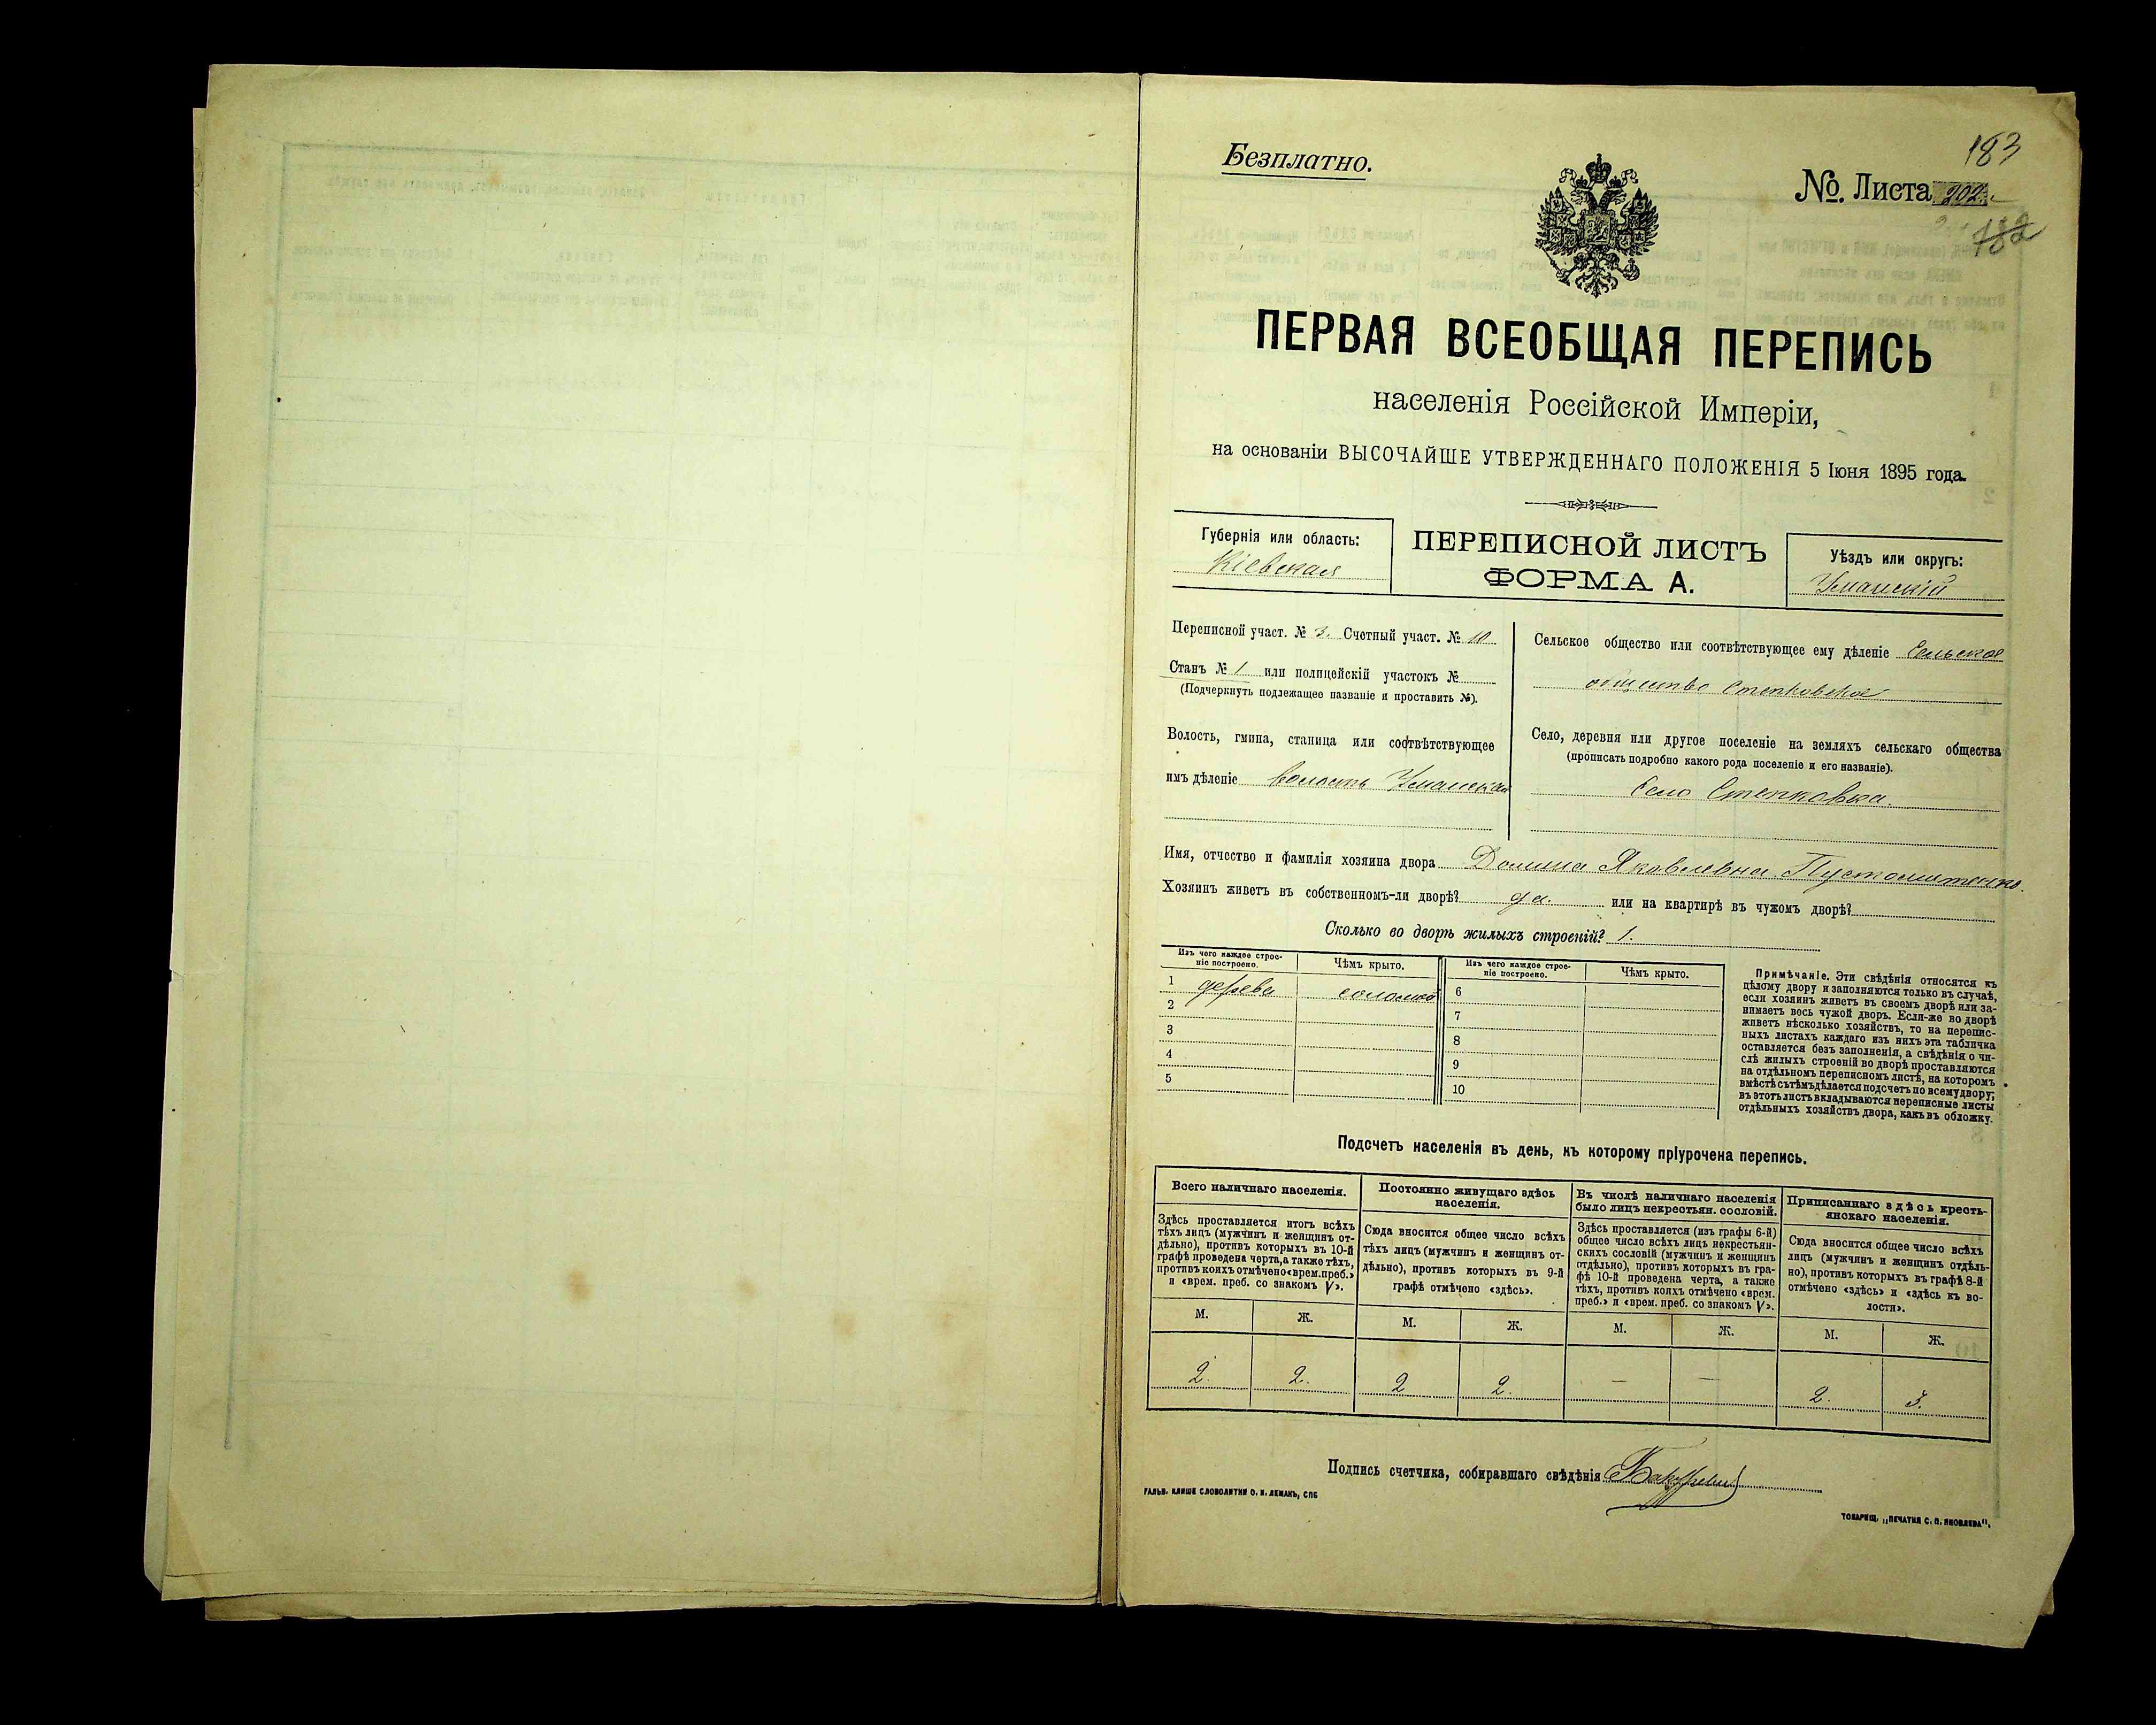 183
Безплатно.
№. Листа 202
182
ПЕРВАЯ ВСЕОБЩАЯ ПЕРЕПИСЬ
населенія Россійской Имперіи,
на основаніи ВЫСОЧАЙШЕ УТВЕРЖДЕННАГО ПОЛОЖЕНІЯ 5 Іюня 1895 года.
Губернія или область:
Кіевская
ПЕРЕПИСНОЙ ЛИСТЪ
ФОРМА А.
Уѣздъ или округъ:
Уманскій
Переписной участ. № 3. Счетный участ. № 10
Станъ № 1 или полицейскій участокъ №
(Подчеркнуть подлежащее названіе и проставить №).
Волость, гмина, станица или соотвѣтствующее
имъ дѣленіе волость Уманская
Сельское общество или соотвѣтствующее ему дѣленіе Сельское
общество Степковское
Село, деревня или другое поселеніе на земляхъ сельскаго общества
(прописать подробно какого рода поселеніе и его названіе).
Село Степковка.
Имя, отчество и фамилія хозяина двора Домина Яковлевна
Хозяинъ живетъ въ собственномъ-ли дворѣ? да. или на квартирѣ въ чужомъ дворѣ?
Сколько во дворѣ жилыхъ строеній? 1.
Изъ чего каждое строе-
ніе построено.
Чѣмъ крыто.
1 дерева соломой
2
3
4
5
Изъ чего каждое строе-
ніе построено.
Чѣмъ крыто.
6
7
8
9
10
Примѣчаніе. Эти свѣдѣнія относятся къ
цѣлому двору и заполняются только въ случаѣ,
если хозяинъ живетъ въ своемъ дворѣ или за-
нимаетъ весь чужой дворъ. Если-же во дворѣ
живетъ нѣсколько хозяйствъ, то на перепис-
ныхъ листахъ каждаго изъ нихъ эта табличка
оставляется безъ заполненія, а свѣдѣнія о чи-
слѣ жилыхъ строеній во дворѣ проставляются
на отдѣльномъ переписномъ листѣ, на которомъ
вмѣстѣ съ тѣмъ дѣлается подсчетъ по всему двору;
въ этотъ листъ вкладываются переписные листы
отдѣльныхъ хозяйствъ двора, какъ въ обложку.
Подсчетъ населенія въ день, къ которому пріурочена перепись.
Всего наличнаго населенія.
Здѣсь проставляется итогъ всѣхъ
тѣхъ лицъ (мужчинъ и женщинъ от-
дѣльно), противъ которыхъ въ 10-й
графѣ проведена черта, а также тѣхъ,
противъ коихъ отмѣчено «врем. преб.»
и «врем. преб. со знакомъ V».
М. Ж.
2. 2.
Постоянно живущаго здѣсь
населенія.
Сюда вносится общее число всѣхъ
тѣхъ лицъ (мужчинъ и женщинъ от-
дѣльно), противъ которыхъ въ 9-й
графѣ отмѣчено «здѣсь».
М. Ж.
2 2.
Въ числѣ наличнаго населенія
было лицъ некрестьян. сословій.
Здѣсь проставляется (изъ графы 6-й)
общее число всѣхъ лицъ некрестьян-
скихъ сословій (мужчинъ и женщинъ
отдѣльно), противъ которыхъ въ гра-
фѣ 10-й проведена черта, а также
тѣхъ, противъ коихъ отмѣчено «врем.
преб.» и «врем. преб. со знакомъ V».
М. Ж.
— —
Приписаннаго здѣсь кресть-
янскаго населенія.
Сюда вносится общее число всѣхъ
лицъ (мужчинъ и женщинъ отдѣль-
но), противъ которыхъ въ графѣ 8-й
отмѣчено «здѣсь» и «здѣсь къ во-
лости».
М. Ж.
2. 3.
Подпись счетчика, собиравшаго свѣдѣнія
ГАЛЬВ. КЛИШЕ СЛОВОЛИТНИ О. И. ЛЕМАНЪ, СПБ
ТОВАРИЩ. „ПЕЧАТНЯ С. П. ЯКОВЛЕВА".